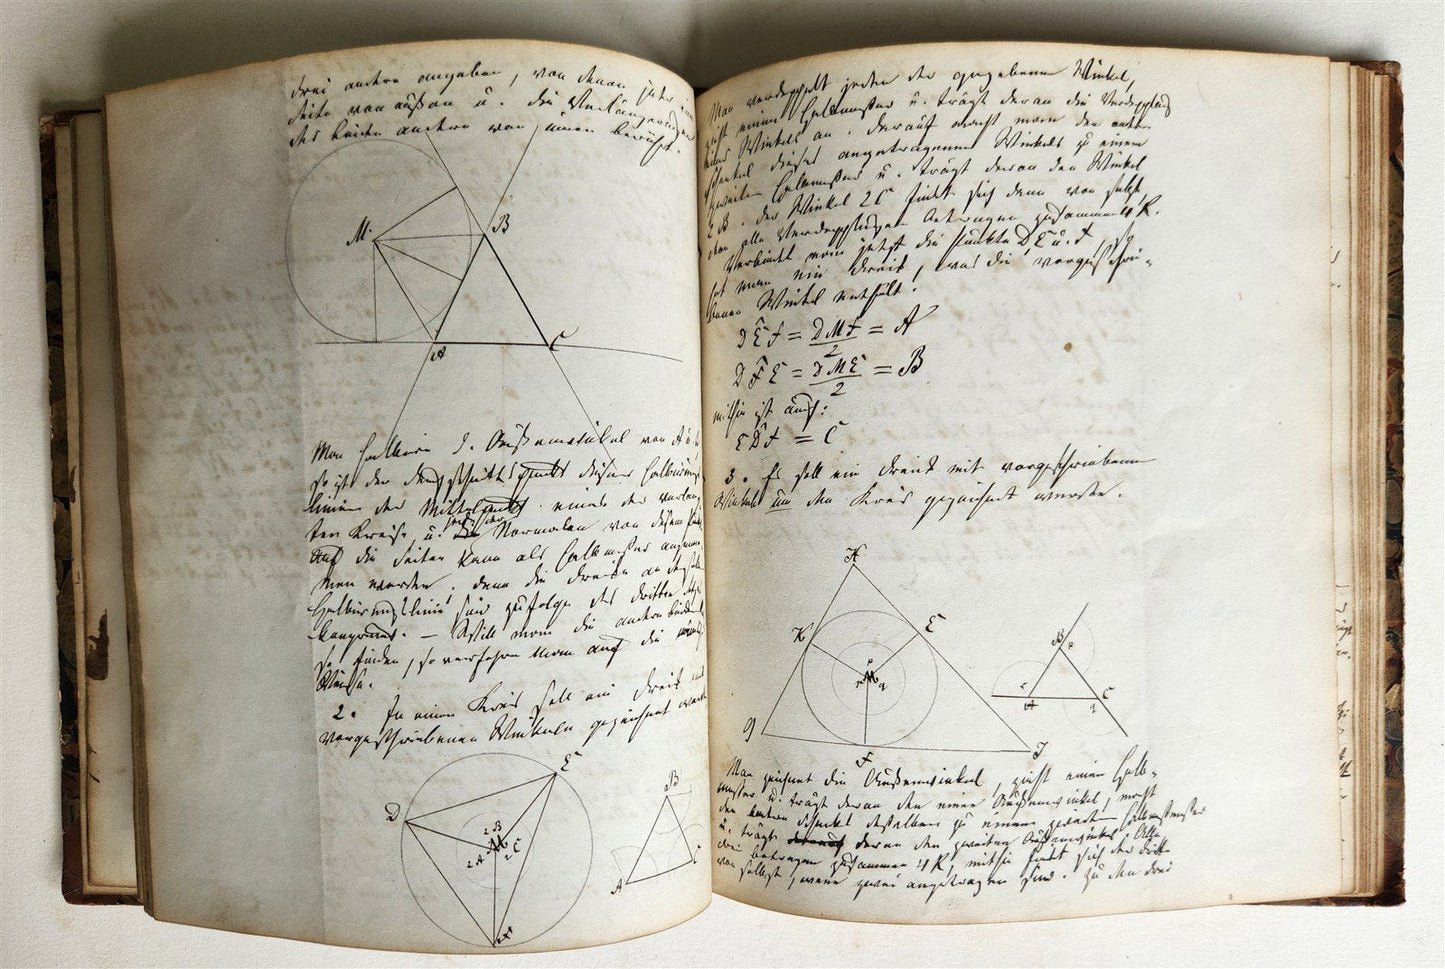 drei andere angeben, von denen jeder eine
Seite von außen u. die Verlängerungen
der beiden andern von innen berührt.
M.
B
A
C
Man halbire d. Außenwinkel von A u.
so ist der Durchschnittspunkt dieser Halbirungs
linien der Mittelpunkt eines der verlang
ten Kreise, u. die Normalen von diesem Punkt
auf die Seiten kann als Halbmesser angenom
men werden, denn die Dreiecke an der
Halbirungslinie sind zufolge des dritten
kongruent. — Will man die andern beiden
so finden, so verfahre man auf die
Weise.
2. In einen Kreis soll ein Dreieck mit
vorgeschriebenen Winkeln gezeichnet werden
E
D
2B
M
2A
2C
F
B
A
C
Man verdoppelt jeden der gegebenen Winkel,
zieht einen Halbmesser u. trägt daran die Verdopplung
eines Winkels an. Darauf macht man den andern
Schenkel dieses angetragenen Winkels zu einem
zweiten Halbmesser u. trägt daran den Winkel
2B. Der Winkel 2C findet sich dann von selbst,
denn alle Verdopplungen betragen zusammen 4R.
Verbindet man jetzt die Punkte D E u. F, so
hat man ein Dreieck, was die vorgeschrie-
benen Winkel enthält.
DEF = DMF/2 = A
DFE = DME/2 = B
mithin ist auch:
EDF = C
3. Es soll ein Dreieck mit vorgeschriebenen
Winkeln um den Kreis gezeichnet werden.
H
K
E
p
M
q
G
F
J
B
p
A
q
C
Man zeichnet die Außenwinkel, zieht einen Halb-
messer u. trägt daran den einen Außenwinkel, macht
den andern Schenkel desselben zu einem zweiten Halbmesser
u. trägt daran den zweiten Außenwinkel. Alle
drei betragen zusammen 4R, mithin findet sich der dritte
von selbst, wenn zwei angetragen sind. Zu den drei